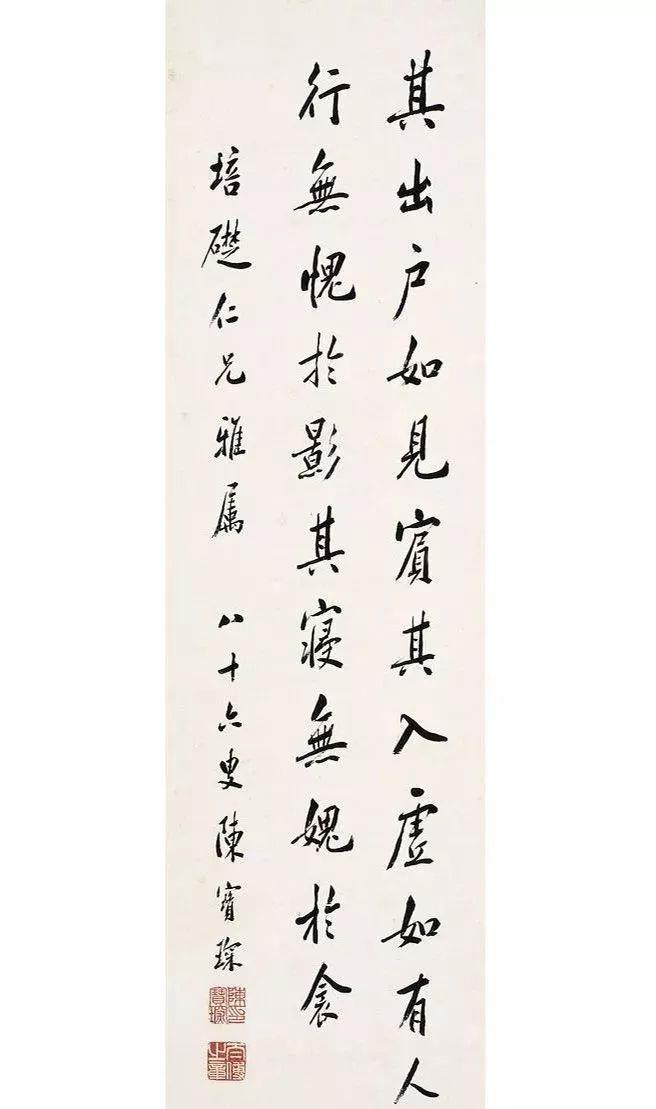 其出户如見賓其入虛如有人
行無愧於影其寢無媿於衾
培礎仁兄雅屬 八十六叟陳寶琛
陳印寶琛
太傅之章